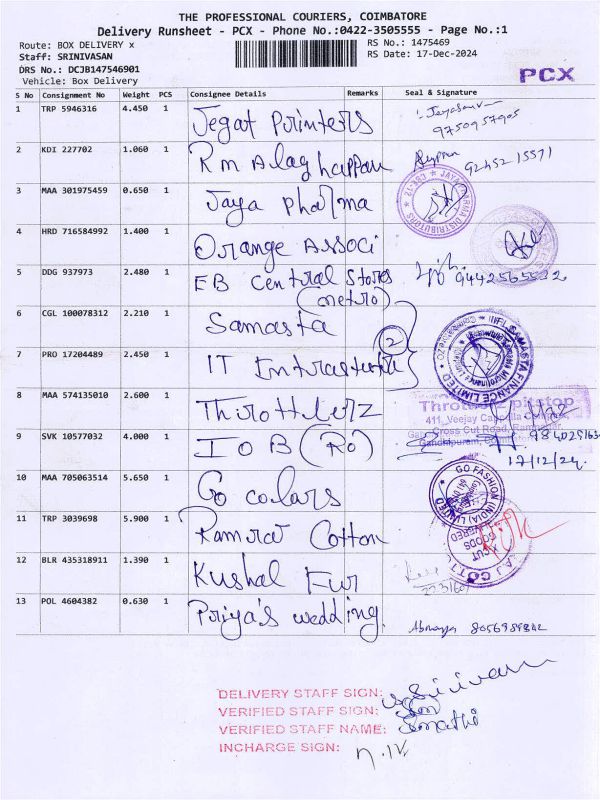 THE PROFESSIONAL COURIERS, COIMBATORE
Delivery Runsheet - PCX - Phone No.:0422-3505555 - Page No.:1
Route: BOX DELIVERY x RS No.: 1475469
Staff: SRINIVASAN RS Date: 17-Dec-2024
DRS No.: DCJB147546901
Vehicle: Box Delivery
PCX
S No Consignment No Weight PCS Consignee Details Remarks Seal & Signature
1 TRP 5946316 4.450 1 Jegat Printers
9750957905
2 KDI 227702 1.060 1 Rm Alaghappan 9245215571
3 MAA 301975459 0.650 1 Jaya pharma
4 HRD 716584992 1.400 1 Orange Associ
5 DDG 937973 2.480 1 EB Central Stores
(metro)
6 CGL 100078312 2.210 1 Samasta
2
7 PRO 17204489 2.450 1 IT
8 MAA 574135010 2.600 1 Throttlerz
411, Veejay
Cross Cut Road,
9 SVK 10577032 4.000 1 IOB (Ro)
17/12/24
10 MAA 705063514 5.650 1 Go colors
GO FASHION (INDIA) LIMITED
11 TRP 3039698 5.900 1 Ramraj Cotton
12 BLR 435318911 1.390 1 Kushal Fur
13 POL 4604382 0.630 1 Priya's wedding
DELIVERY STAFF SIGN:
VERIFIED STAFF SIGN:
VERIFIED STAFF NAME:
INCHARGE SIGN: